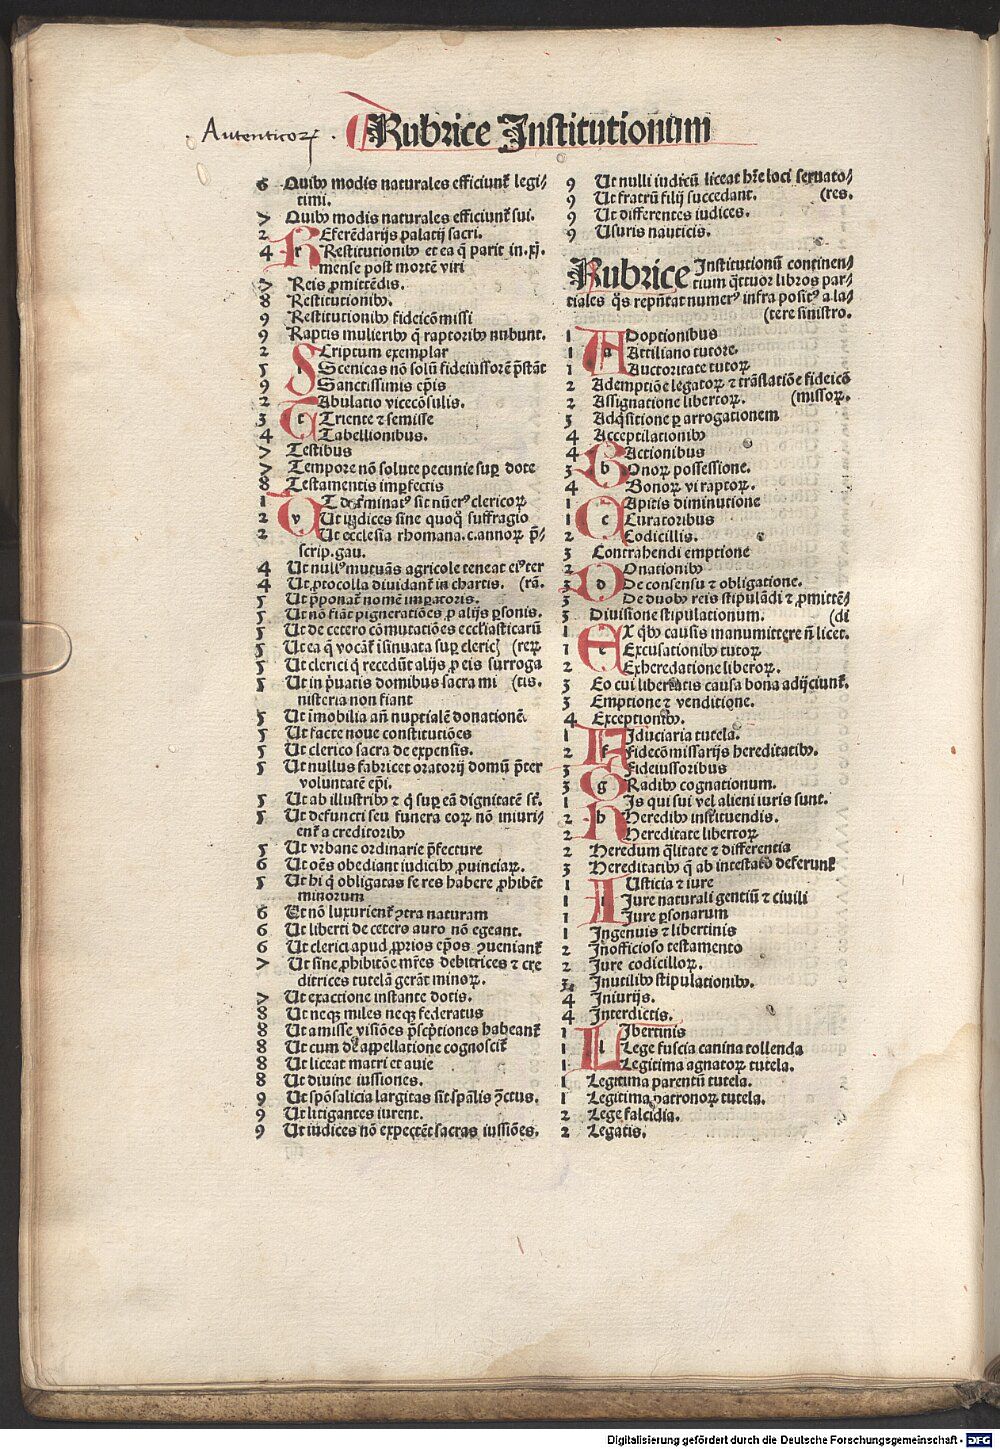 . Autenticoꝝ .
Rubrice Institutionum
6 Quibꝰ modis naturales efficiunt̉ legi⸗
timi.
7 Quibꝰ modis naturales efficiunt̉ sui.
2 REferēdarijs ꝑalatij sacri.
4 r Restitutionibꝰ et ea q̄ parit in .xj.
mense post mortē viri
7 Reis ꝓmittēdis.
8 Restitutionibꝰ.
9 Restitutionibꝰ fideicōmissi
9 Raptis mulieribꝰ q̄ raptoribꝰ nubunt.
2 SCriptum exemplar
5 s Scenicas nō solū fideiussorē p̄stāt
9 Sanctissimis ep̄is
2 TAbulatio vicecōsulis.
3 t Triente ⁊ semisse
4 Tabellionibus.
7 Testibus
7 Tempore nō solute pecunie suꝑ dote
8 Testamentis imꝑfectis
1 VT deẗminatꝰ sit nūerꝰ clericoꝝ
2 v Ut iudices sine quoqꝫ suffragio
2 Ut ecclesia rhomana .c. annoꝝ p̄⸗
scrip. gau.
4 Ut nullꝰ mutuās agricole teneat eiꝰ ter
4 Ut ꝓtocolla diuidant̉ in chartis. (rā.
5 Ut p̄ponat̉ nomē imꝑatoris.
5 Ut nō fiāt pigneratiōes ꝓ alijs ꝑsonis.
5 Ut de cetero cōmutatiōes eccl̄iasticarū
5 Ut ea q̄ vocāt̉ īsinuata suꝑ cleric̄ (reꝝ
5 Ut clerici q̄ recedūt alijs ꝓ eis surroga
5 Ut in p̄uatis domibus sacra mi (tis.
nisteria non fiant
5 Ut īmobilia an̄ nuptialē donationē.
5 Ut facte noue constitutiōes
5 Ut clerico sacra de expensis.
5 Ut nullus fabricet oratorij domū p̄ter
voluntatē ep̄i.
5 Ut ab illustribꝰ ⁊ q̄ suꝑ eā dignitatē st̄.
5 Ut defuncti seu funera eoꝝ nō iniuri⸗
ent̉ a creditoribꝰ
5 Ut vrbane ordinarie p̄fecture
6 Ut oēs obediant iudicibꝰ ꝓuinciaꝝ.
5 Ut hi q̄ obligatas se res habere ꝓhibēt
minorum
6 Ut nō luxurient̉ ꝯtra naturam
6 Ut liberti de cetero auro nō egeant.
6 Ut clerici apud ꝓprios ep̄os ꝯueniant̉
7 Ut sine ꝓhibitōe mr̄es debitrices ⁊ cre
ditrices tutelā gerāt minoꝝ.
7 Ut exactione instante dotis.
8 Ut neqꝫ miles neqꝫ federatus
8 Ut amisse visiōes p̄scp̄tiones habeant̉
8 Ut cum de appellatione cognoscit̉
8 Ut liceat matri et auie
8 Ut diuine iussiones.
9 Ut spōsalicia largitas sit sp̄alis ꝯctus.
9 Ut litigantes iurent.
9 Ut iudices nō expectēt sacras iussiōes.
9 Ut nulli iudicū liceat hr̄e loci seruato⸗
9 Ut fratrū filij succedant. (res.
9 Ut differentes iudices.
9 Usuris nauticis.
Rubrice Institutionū continen⸗
tium q̄ttuor libros par⸗
tiales q̄s repn̄tat numerꝰ infra positꝰ a la⸗
(tere sinistro.
1 ADoptionibus
1 a Attiliano tutore.
1 Auctoritate tutoꝝ
2 Ademptiōe legatoꝝ ⁊ trāslatiōe fideicō
2 Assignatione libertoꝝ. (missoꝝ.
3 Adq̄sitione ꝑ arrogationem
4 Acceptilationibꝰ
4 Actionibus
3 b BOnoꝝ possessione.
4 Bonoꝝ vi raptoꝝ.
1 CApitis diminutione
1 c Curatoribus
2 Codicillis.
3 Contrahendi emptione
2 DOnationibꝰ
3 d De consensu ⁊ obligatione.
3 De duobꝰ reis stipulādi ⁊ ꝓmittē⸗
3 Diuisione stipulationum. (di
1 EX q̄bꝰ causis manumittere n̄ licet.
1 e Excusationibꝰ tutoꝝ
2 Exheredatione liberoꝝ.
3 Eo cui libertatis causa bona adijciunt̉.
3 Emptione ⁊ venditione.
4 Exceptionibꝰ.
1 FIduciaria tutela.
2 f Fidecōmissarijs hereditatibꝰ.
3 Fideiussoribus
3 g GRadibꝰ cognationum.
1 HIs qui sui vel alieni iuris sunt.
2 h Heredibꝰ instituendis.
2 Hereditate libertoꝝ
2 Heredum q̄litate ⁊ differentia
3 Hereditatibꝰ q̄ ab intestato deferunt̉
1 IUsticia ⁊ iure
1 i Jure naturali gentiū ⁊ ciuili
1 Jure ꝑsonarum
1 Ingenuis ⁊ libertinis
2 Inofficioso testamento
2 Jure codicilloꝝ.
3 Inutilibꝰ stipulationibꝰ.
4 Iniurijs.
4 Interdictis.
1 LIbertinis
1 l Lege fuscia canina tollenda
1 Legitima agnatoꝝ tutela.
1 Legitima parentū tutela.
1 Legitima patronoꝝ tutela.
2 Lege falcidia.
2 Legatis.
Digitalisierung gefördert durch die Deutsche Forschungsgemeinschaft - DFG